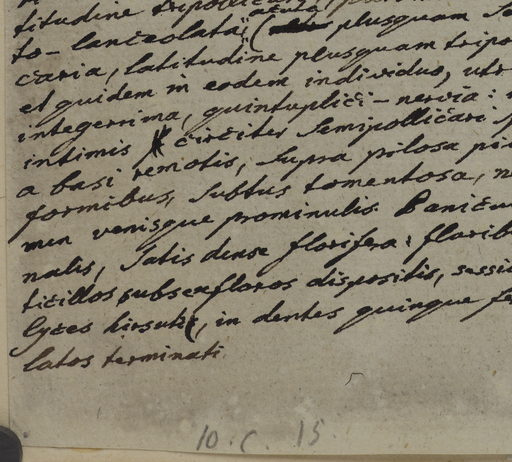 titudine tripollicari
to-lanceolata, acuta (plusquam
caria, latitudine plusquam tripo
et quidem in eodem individuo, utr
integerrima, quintuplici-nervia:
intimis circiter semipollicari
a basi remotis, supra pilosa pi
formibus, subtus tomentosa, n
men venisque prominulis. Panicu
nalis, satis dense florifera: florib
ticillos subsexfloros dispositis, sessi
lyces hirsuti, in dentes quinque fe
latos terminati
10. C. 15.